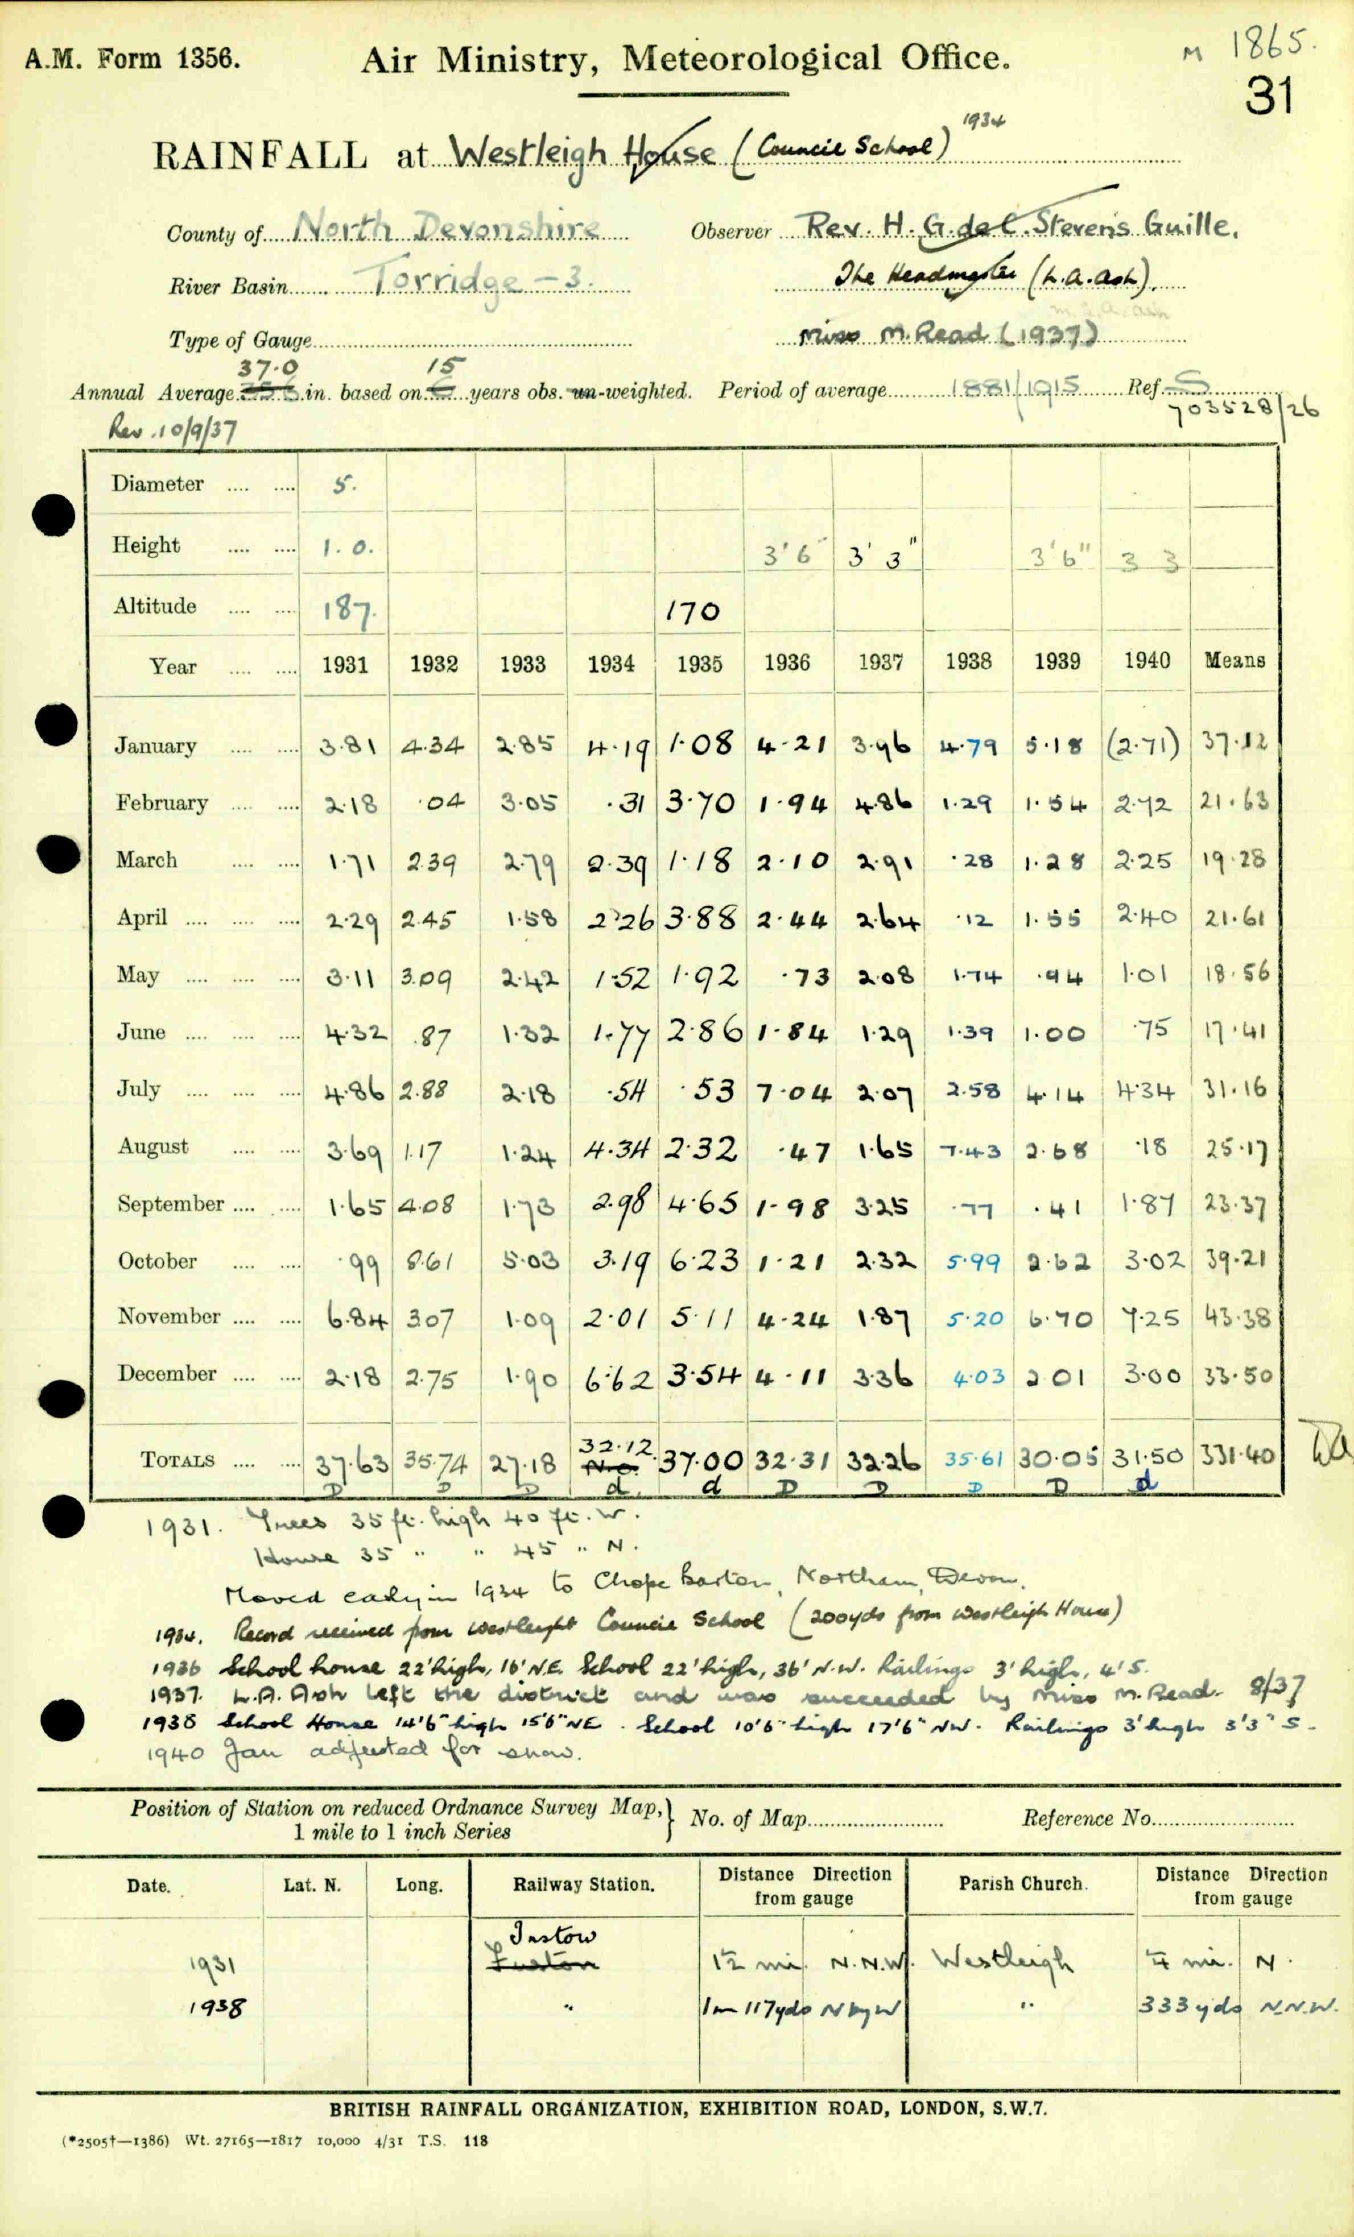 A.M. Form 1356.
Air Ministry, Meteorological Office.
M 1865.
31
RAINFALL at Westleigh House (Council School) 1934
County of North Devonshire Observer Rev. H. G. de L. Stevens Guille.
River Basin Torridge - 3. The Headmaster (L.A. Ash).
Type of Gauge Miss M. Read (1937)
37.0 15
Annual Average in. based on years obs. un-weighted. Period of average 1881/1915 Ref. S
Rev. 10/9/37 703528/26
Diameter 5.
Height 1.0. 3'6" 3'3" 3'6" 3 3
Altitude 187. 170
Year 1931 1932 1933 1934 1935 1936 1937 1938 1939 1940 Means
January 3.81 4.34 2.85 4.19 1.08 4.21 3.96 4.79 5.18 (2.71) 37.12
February 2.18 .04 3.05 .31 3.70 1.94 4.86 1.29 1.54 2.72 21.63
March 1.71 2.39 2.79 2.39 1.18 2.10 2.91 .28 1.28 2.25 19.28
April 2.29 2.45 1.58 2.26 3.88 2.44 2.64 .12 1.55 2.40 21.61
May 3.11 3.09 2.42 1.52 1.92 .73 2.08 1.74 .94 1.01 18.56
June 4.32 .87 1.32 1.77 2.86 1.84 1.29 1.39 1.00 .75 17.41
July 4.86 2.88 2.18 .54 .53 7.04 2.07 2.58 4.14 4.34 31.16
August 3.69 1.17 1.24 4.34 2.32 .47 1.65 7.43 2.68 .18 25.17
September 1.65 4.08 1.73 2.98 4.65 1.98 3.25 .77 .41 1.87 23.37
October .99 8.61 5.03 3.19 6.23 1.21 2.32 5.99 2.62 3.02 39.21
November 6.84 3.07 1.09 2.01 5.11 4.24 1.87 5.20 6.70 7.25 43.38
December 2.18 2.75 1.90 6.62 3.54 4.11 3.36 4.03 2.01 3.00 33.50
TOTALS 37.63 35.74 27.18 32.12 N.O. 37.00 32.31 32.26 35.61 30.05 31.50 331.40
D D D d d D D D D d
1931. Trees 35 ft. high 40 ft. W.
House 35 " " 45 " N.
Moved early in 1934 to Chope Barton, Northam, Devon.
1934. Record received from Westleigh Council School (200yds from Westleigh House)
1936 School house 22' high, 16' N.E. School 22' high, 36' N.W. Railings 3' high, 4' S.
1937. L.A. Ash left the district and was succeeded by Miss M. Read. 8/37
1938 School House 14'6" high 15'6" NE. School 10'6" high 17'6" NW. Railings 3' high 3'3" S.
1940 Jan adjusted for snow.
Position of Station on reduced Ordnance Survey Map, 1 mile to 1 inch Series } No. of Map Reference No.
Date. Lat. N. Long. Railway Station. Distance Direction from gauge Parish Church. Distance Direction from gauge
Instow
1931 1½ mi. N.N.W. Westleigh ¼ mi. N.
1938 " 1m 117yds N by W " 333 yds N.N.W.
BRITISH RAINFALL ORGANIZATION, EXHIBITION ROAD, LONDON, S.W.7.
(*2505†—1386) Wt. 27165—1817 10,000 4/31 T.S. 118